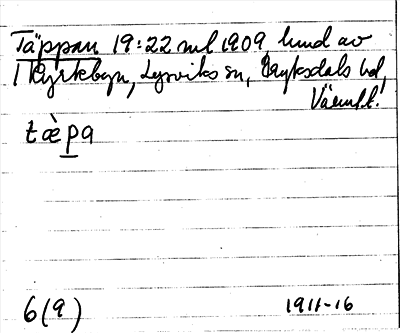 Täppan 19:22 ml 1909, lund av
1 Kyrkebyn, Lysviks sn, Fryksdals hd,
Värml.
tæ̀p̲a
6(9) 1911-16